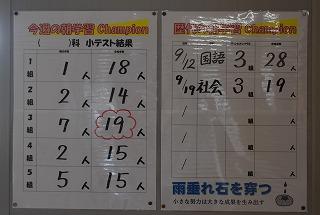 今週の朝学習 Champion
( )科 小テスト結果
1組 1人 18人
2組 2人 14人
3組 7人 19人
4組 2人 15人
5組 5人 15人
Champion
9/12 国語 3組 28人
9/19 社会 3組 19人
/ 組 人
/ 組 人
/ 組 人
雨垂れ石を穿つ
小さな努力は大きな成果を生み出す